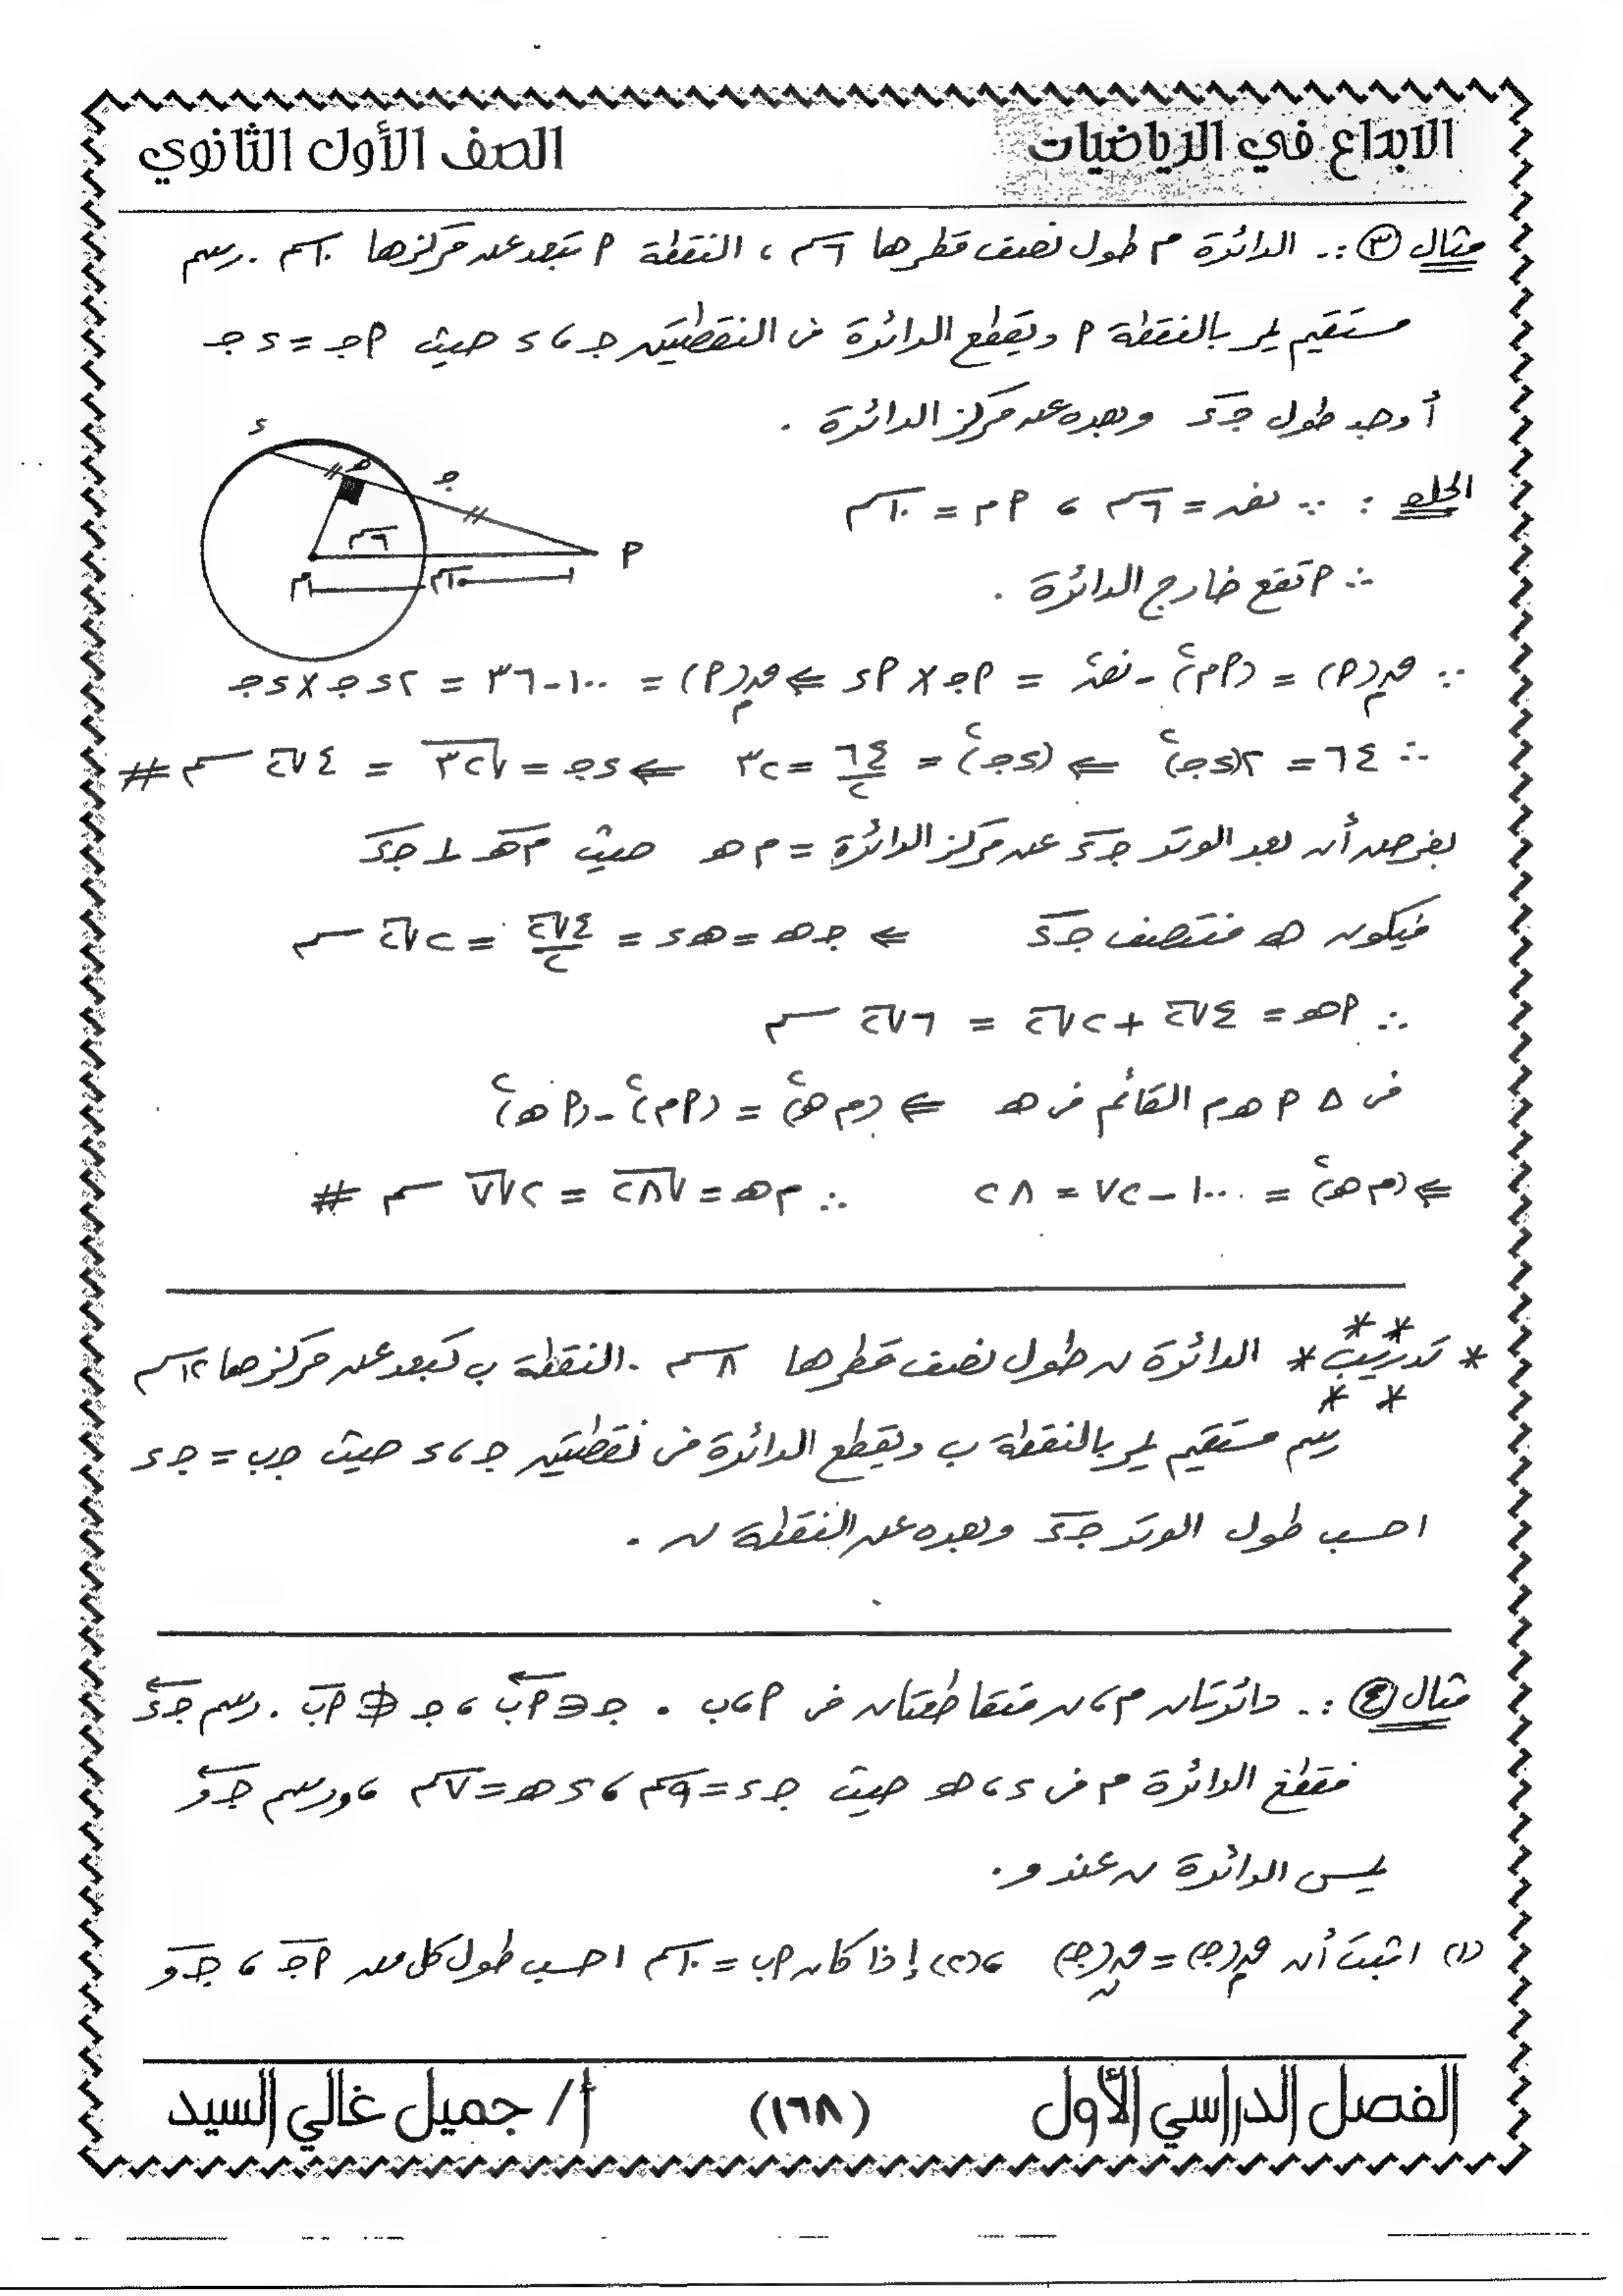 الابداع في الرياضيات
الصف الأول الثانوي
مثال (٣) :. الدائرة م طول نصف قطرها ٦ سم ، النقطة أ تبعد عن مركزها ١٠ سم . رسم
مستقيم يمر بالنقطة أ ويقطع الدائرة فى النقطتين جـ ، د حيث أجـ = د جـ
أوجد طول جـد وبعده عن مركز الدائرة .
الحل : ∵ نق = ٦ سم ، أم = ١٠ سم
∴ أ تقع خارج الدائرة .
د
هـ
جـ
٦ سم
أ
م
١٠ سم
∵ قم(أ) = (أم)٢ - نق٢ = أجـ × أد ⇐ قم(أ) = ١٠٠ - ٣٦ = ٢ د جـ × د جـ
∴ ٦٤ = ٢(د جـ)٢ ⇐ (د جـ)٢ = ٦٤/٢ = ٣٢ ⇐ د جـ = √٣٢ = ٤√٢ سم #
بفرض أن بعد الوتر جـد عن مركز الدائرة = م هـ حيث م هـ ⊥ جـد
فيكون هـ منتصف جـد ⇐ جـ هـ = هـ د = ٤√٢/٢ = ٢√٢ سم
∴ أهـ = ٤√٢ + ٢√٢ = ٦√٢ سم
فى △ أ هـ م القائم فى هـ ⇐ (م هـ)٢ = (أم)٢ - (أ هـ)٢
⇐ (م هـ)٢ = ١٠٠ - ٧٢ = ٢٨ ∴ م هـ = √٢٨ = ٢√٧ سم #
* تدريب * الدائرة ن طول نصف قطرها ٨ سم . النقطة ب تبعد عن مركزها ١٢ سم
رسم مستقيم يمر بالنقطة ب ويقطع الدائرة فى نقطتين جـ ، د حيث جـ ب = جـ د
احسب طول الوتر جـد وبعده عن النقطة ن .
مثال (٤) :. دائرتان م ، ن متقاطعتان فى أ ، ب . جـ ∈ أب ، جـ ∉ أب . رسم جـد
فقطع الدائرة م فى د ، هـ حيث جـ د = ٩ سم ، د هـ = ٧ سم ، ورسم جـو
يمس الدائرة ن عند و .
(١) اثبت أن قم(جـ) = قن(جـ) ، (٢) إذا كان أب = ١٠ سم احسب طول كل من أجـ ، جـو
الفصل الدراسي الأول
(١٦٨)
أ / جميل غالي السيد